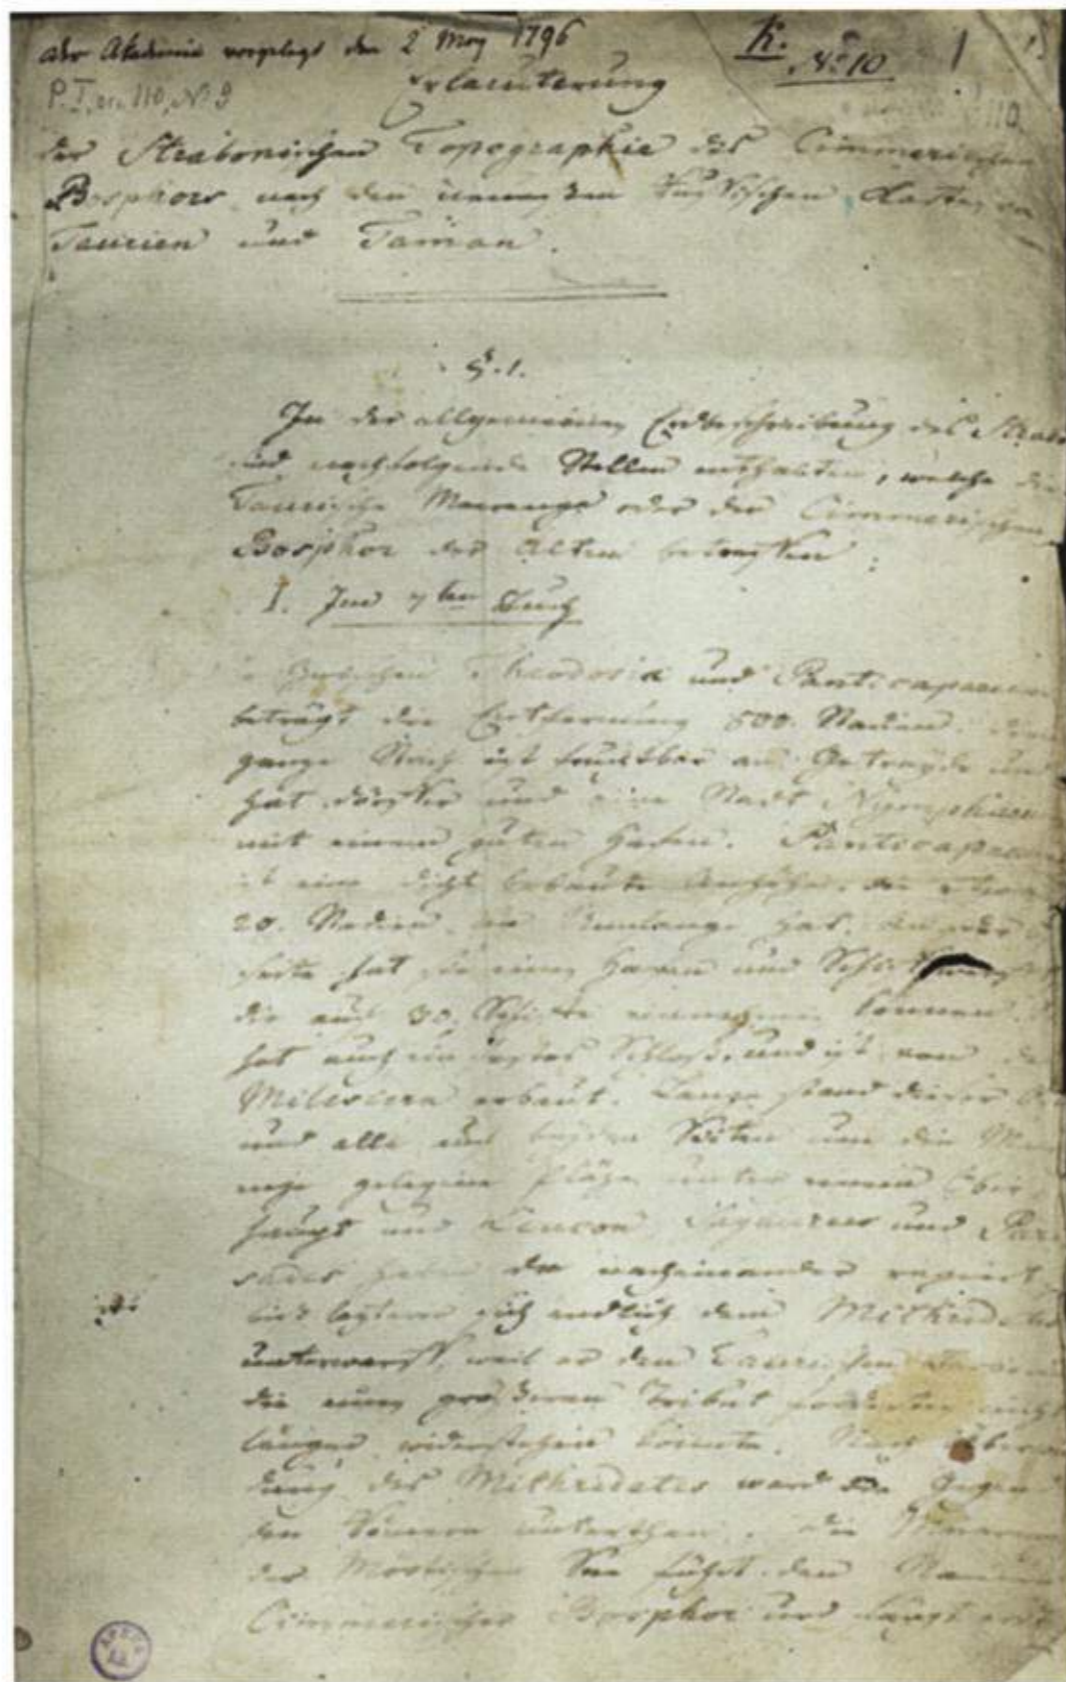 der Akademie vorgelegt den 2 May 1796
K.
No 10
1
P. I, оп. 110, № 9
110
Erlaeuterung
der Strabonischen Topographie des Cimmerischen
Bosphors nach den neuesten Russischen Karten von
Taurien und Taman.
§. 1.
In der allgemeinen Erdbeschreibung des Strabo
sind nachfolgende Stellen enthalten, welche die
Taurische Meerenge oder den Cimmerischen
Bosphor der Alten betreffen:
I. Im 7ten Buch
Zwischen Theodosia und Panticapaeum
beträgt die Entfernung 500. Stadien.
ganze Strich ist fruchtbar an Getrayde und
hat Dörfer und eine Stadt Nymphaeum
mit einem guten Hafen. Panticapaeum
ist eine dicht bebaute Anhöhe, die
20. Stadien im Umfange hat. An der
Seite hat sie einen Haven und
die auf 30. Schiffe einnehmen können.
hat auch ein festes Schloß, und ist von den
Milesiern erbaut. Lange stand dieser
und alle auf beyden Seiten um die
gelegene Pläze unter einem Ober-
haupt und Leucon, Satyrus und Pari-
sades haben da nacheinander regiert,
bis lezterer sich endlich dem Mithridates
unterwarff, weil er den Taurischen
die einen größeren Tribut forderten nicht
länger widerstehen konnte. Nach Überwin-
dung des Mithridates ward die Gegend
den Römern unterthan. Die
des Möotischen See führt den Namen
Cimmerischer Bosphor und fängt